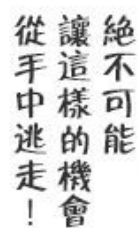 絶不可能
讓這樣的機會
從手中逃走！